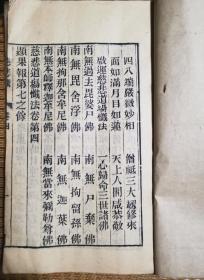 四八端嚴微妙相　僧祇三大劫修來
面如滿月目如蓮　天上人間咸恭敬
啟運慈悲道場懺法　一心歸命三世諸佛
南無過去毘婆尸佛　南無尸棄佛
南無毘舍浮佛　南無拘留孫佛
南無拘那含牟尼佛　南無迦葉佛
南無本師釋迦牟尼佛　南無當來彌勒尊佛
慈悲道場懺法卷第四
顯果報第七之餘